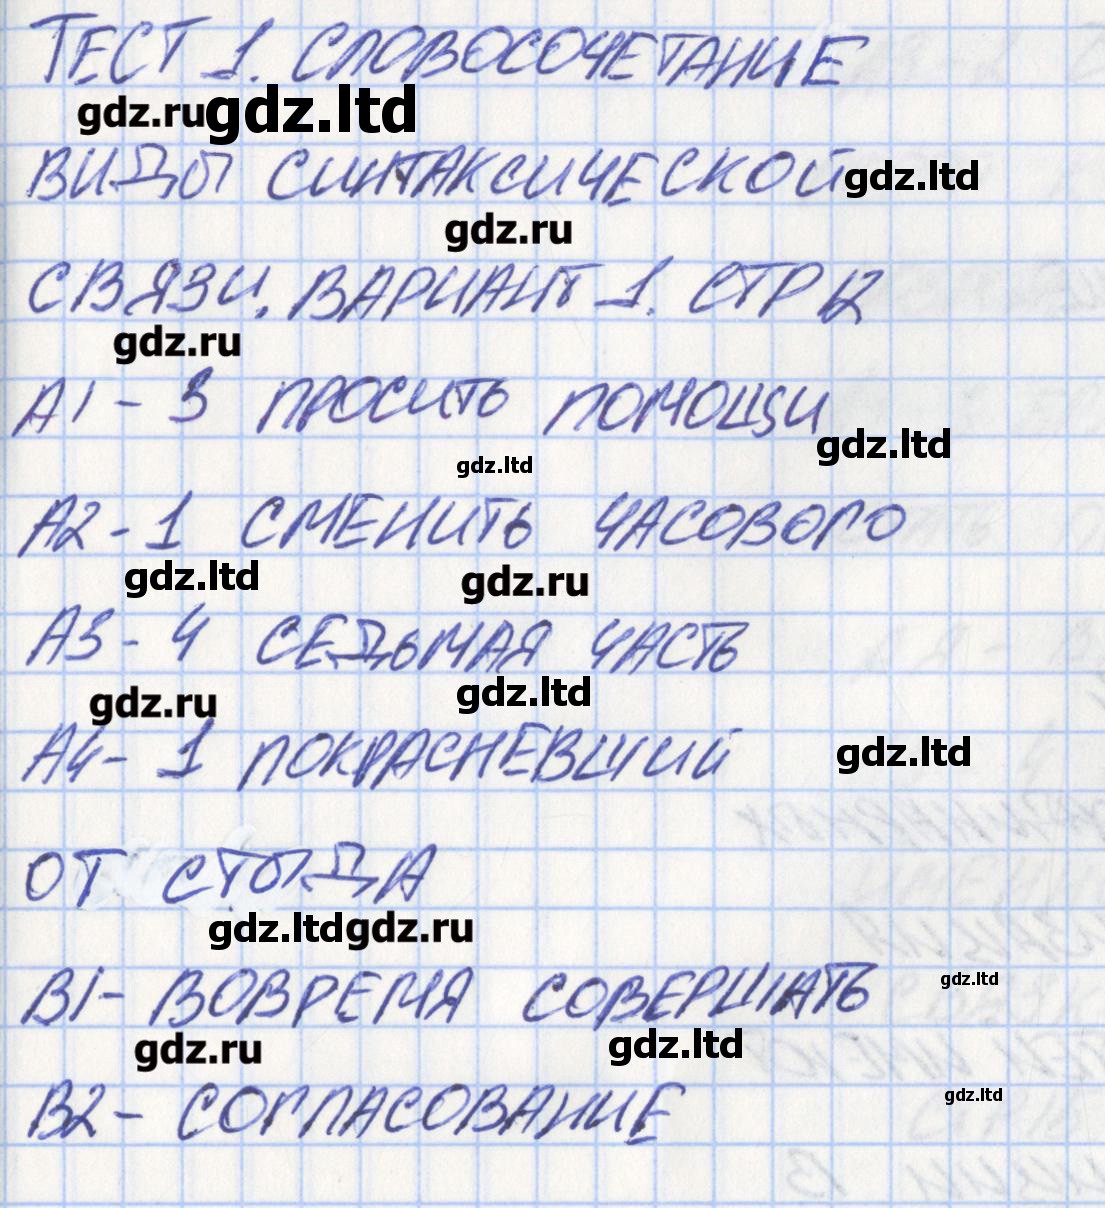 ТЕСТ 1. СЛОВОСОЧЕТАНИЕ
gdz.ru gdz.ltd
ВИДЫ СИНТАКСИЧЕСКОЙ gdz.ltd
gdz.ru
СВЯЗИ. ВАРИАНТ 1. СТР 12
gdz.ru
А1 - 3 ПРОСИТЬ ПОМОЩИ
gdz.ltd
gdz.ltd
А2 - 1 СМЕНИТЬ ЧАСОВОГО
gdz.ltd gdz.ru
А3 - 4 СЕДЬМАЯ ЧАСТЬ
gdz.ru gdz.ltd
А4 - 1 ПОКРАСНЕВШИЙ gdz.ltd
ОТ СТЫДА
gdz.ltd gdz.ru
В1 - ВОВРЕМЯ СОВЕРШАТЬ gdz.ltd
gdz.ru gdz.ltd
В2 - СОГЛАСОВАНИЕ gdz.ltd